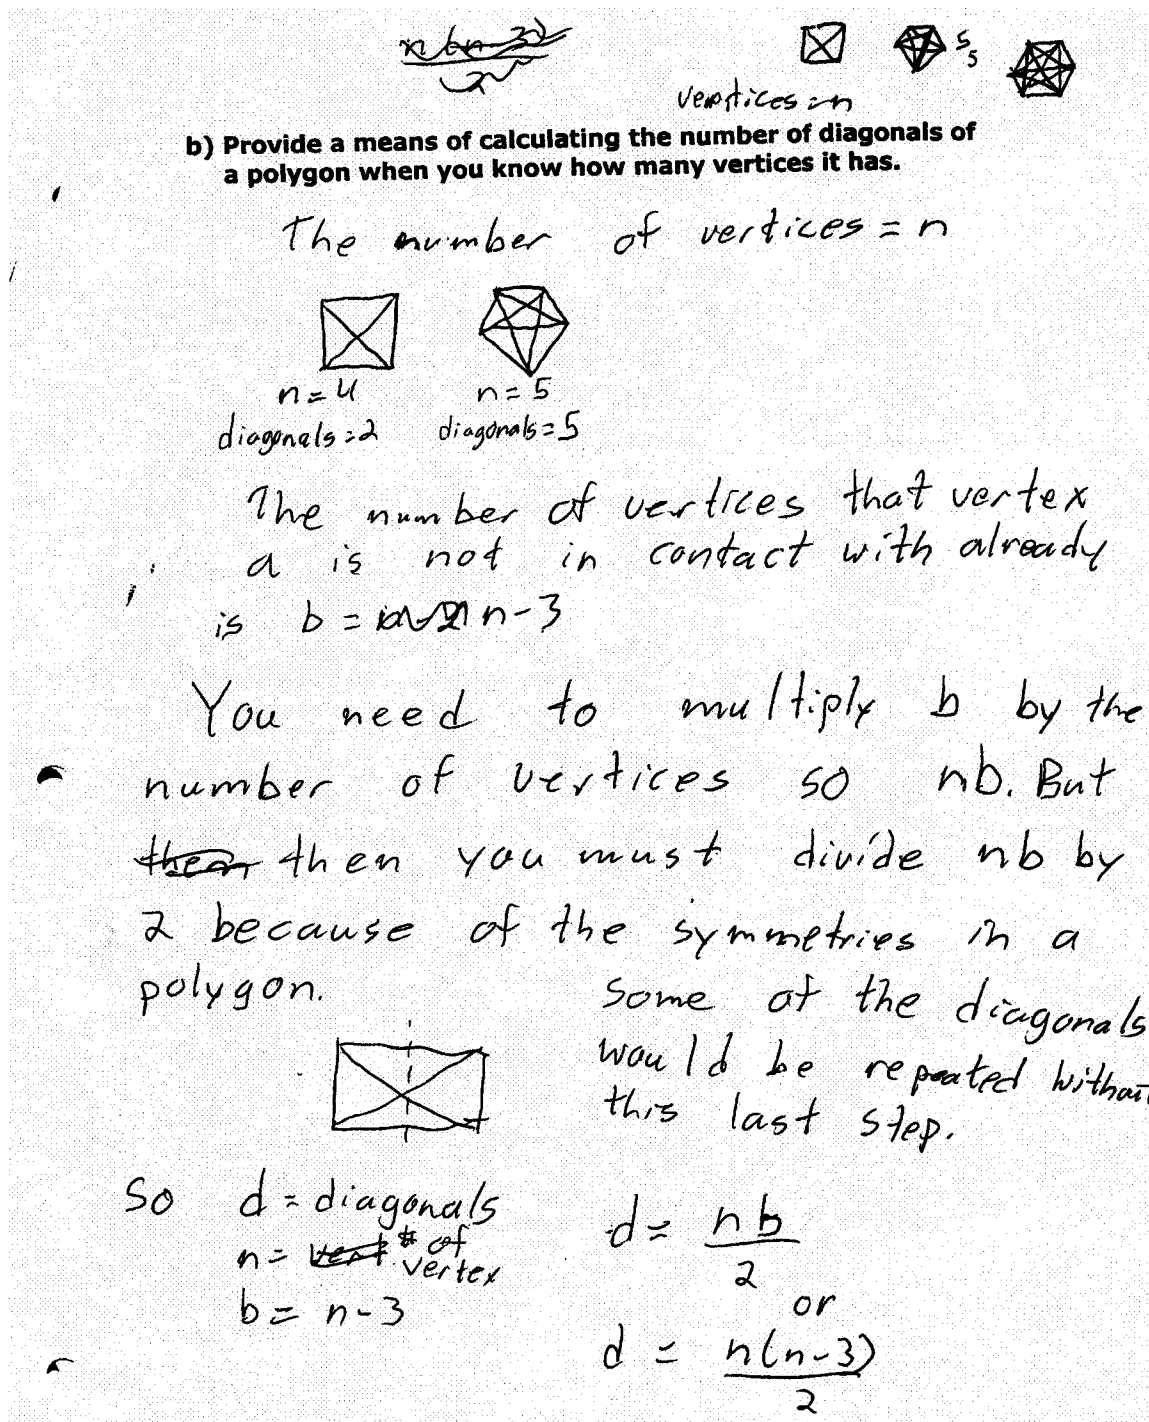 n(n-3)
2
5
5
vertices = n
b) Provide a means of calculating the number of diagonals of
a polygon when you know how many vertices it has.
The number of vertices = n
n = 4
diagonals = 2
n = 5
diagonals = 5
The number of vertices that vertex
a is not in contact with already
is b = n-3
You need to multiply b by the
number of vertices so nb. But
then you must divide nb by
2 because of the symmetries in a
polygon.
Some of the diagonals
would be repeated without
this last step.
So d = diagonals
n = # of
vertex
b = n-3
d = nb
2
or
d = n(n-3)
2